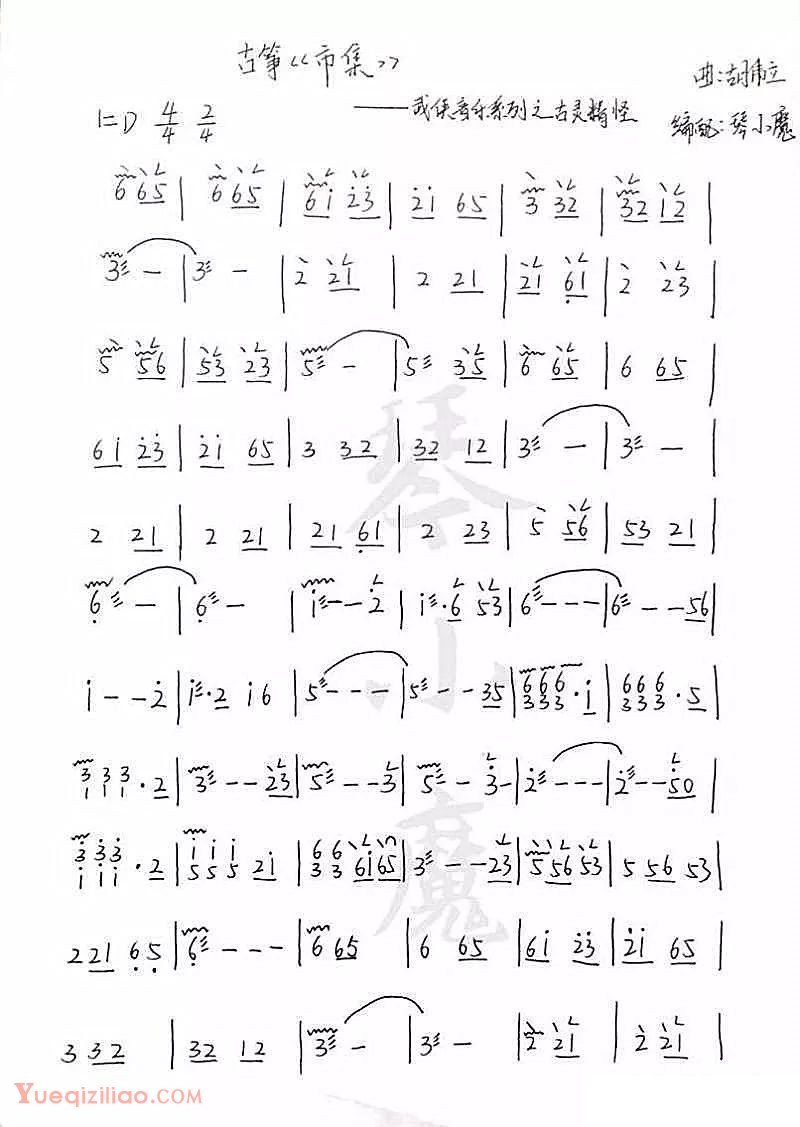 古筝《市集》
曲:胡伟立
——武侠音乐系列之古灵精怪
编配:琴小魔
1=D 4/4 2/4
6 65 | 6 65 | 6i 23 | 2i 65 | 3 32 | 32 12 |
3 - | 3 - | 2 21 | 2 21 | 21 61 | 2 23 |
5 56 | 53 23 | 5 - | 5 35 | 6 65 | 6 65 |
6i 23 | 2i 65 | 3 32 | 32 12 | 3 - | 3 - |
2 21 | 2 21 | 21 61 | 2 23 | 5 56 | 53 21 |
6 - | 6 - | i - - 2 | i · 6 53 | 6 - - - | 6 - - 56 |
i - - 2 | i · 2 i 6 | 5 - - - | 5 - - 35 | 666 333 · i | 666 333 · 5 |
333 111 · 2 | 3 - - 23 | 5 - - 3 | 5 - 3 - | 2 - - - | 2 - - 50 |
333 iii · 2 | iii 555 2i | 66 33 6i65 | 3 - - 23 | 5 56 53 | 5 56 53 |
2 21 6 5 | 6 - - - | 6 65 | 6 65 | 6i 23 | 2i 65 |
3 32 | 32 12 | 3 - | 3 - | 2 21 | 2 21 |
琴小魔
Yueqiziliao.com